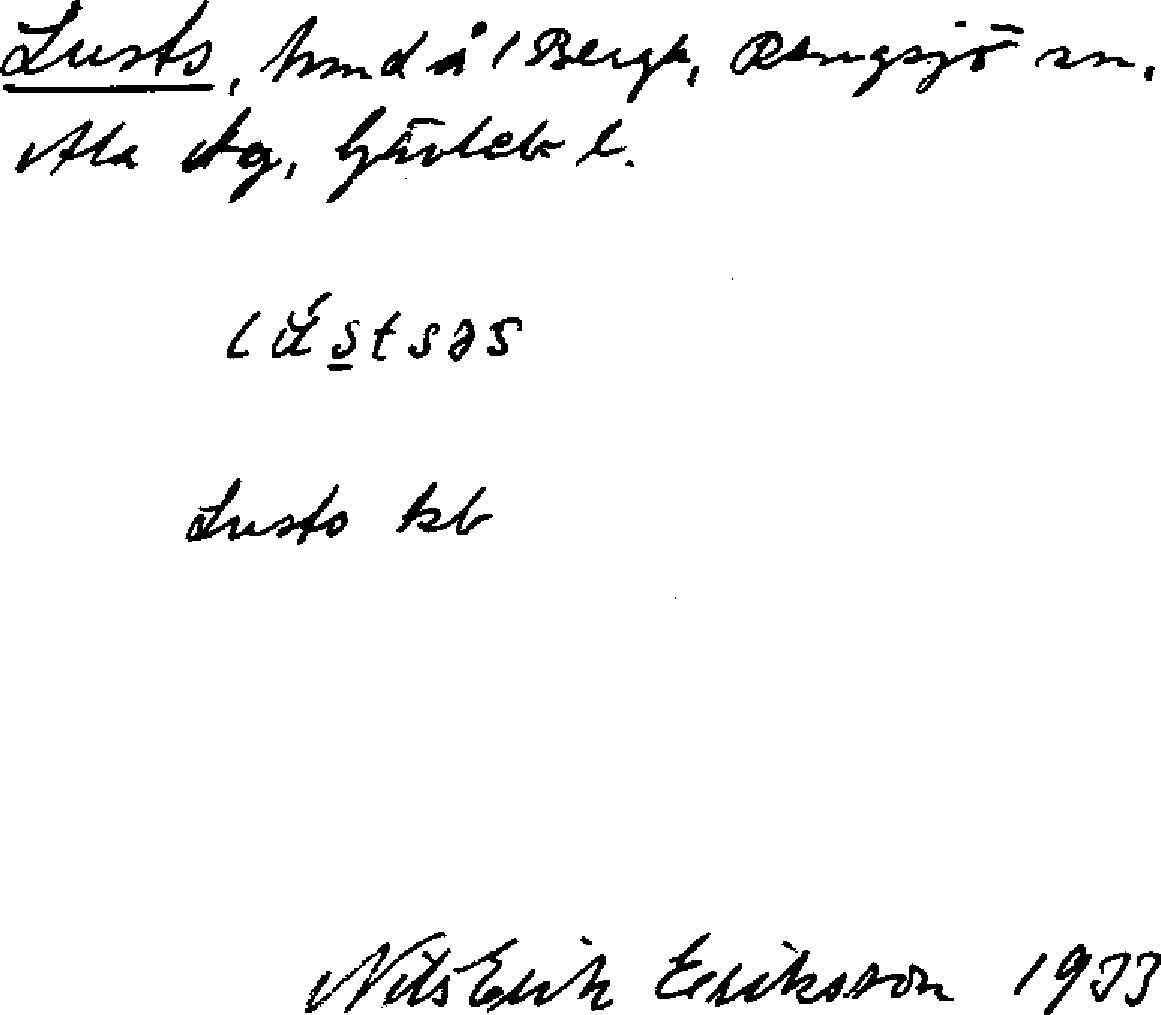 Lusts, hmd å 1 Bergk, Rengsjö sn.
Ala tg, Gävleb l.
lústsəs
Lusts kb
Nils Erik Eriksson 1933